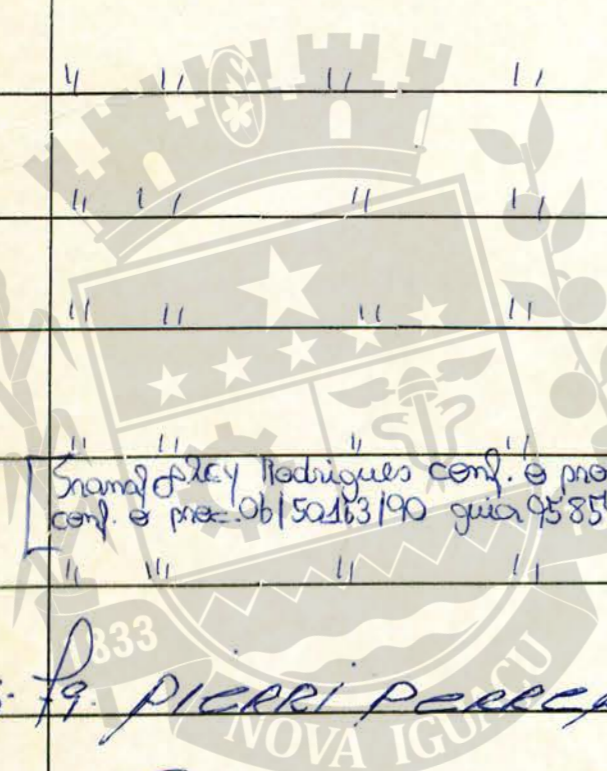 " " " "
" " " "
" " " "
" " " "
Rodrigues conf. o
conf. o proc. 06/50163/90 guia 9585
" " " "
1833
79. PIERRI
NOVA IGUAÇU